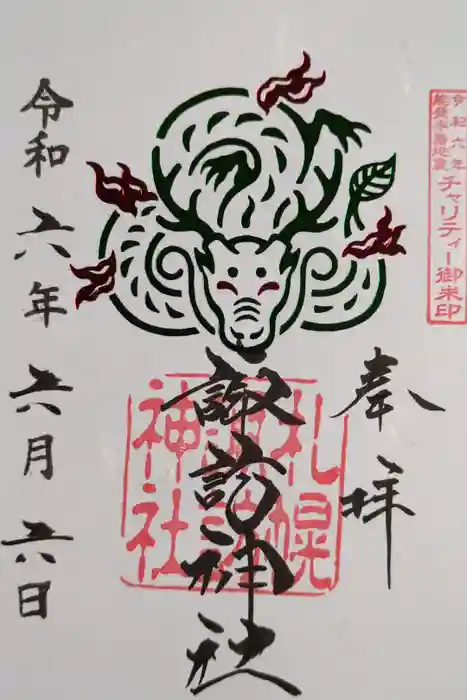 令和六年
能登半島地震
チャリティー御朱印
奉拝
諏訪神社
札幌
諏訪
神社
令和六年六月六日